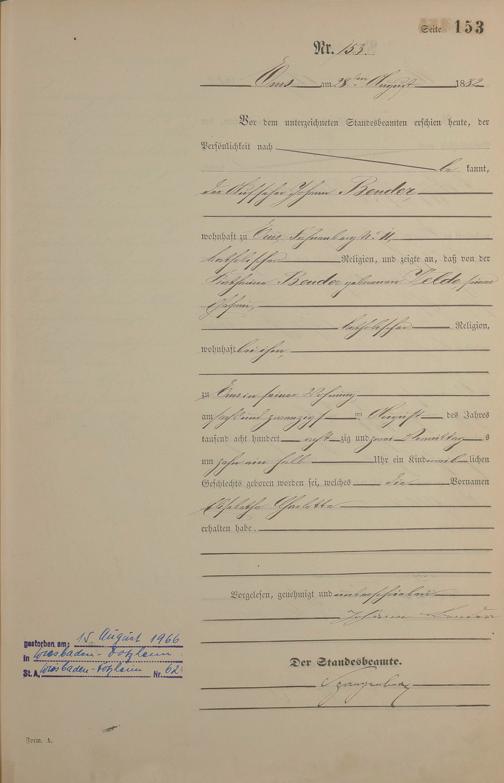 Seite 153
Nr. 153.
Ems am 28ten August 1882
Vor dem unterzeichneten Standesbeamten erschien heute, der
Persönlichkeit nach
be kannt,
der Aufseher Johann Bender,
wohnhaft zu Ems,
katholischer Religion, und zeigte an, daß von der
Bender, geborenen seiner
Ehefrau,
katholischer Religion,
wohnhaft bei ihm,
zu Ems in seiner Wohnung
am sechs und zwanzigsten August des Jahres
tausend acht hundert acht zig und zwei Vormittags
um zehn ein halb Uhr ein Kind weib lichen
Geschlechts geboren worden sei, welches die Vornamen
Elisabetha Charlotte
erhalten habe.
Vorgelesen, genehmigt und unterschrieben
Johann Bender
Der Standesbeamte.
Spangenberg
gestorben am: 15. August 1966
in Wiesbaden-Dotzheim
St. A. Wiesbaden-Dotzheim Nr. 62
Form. A.